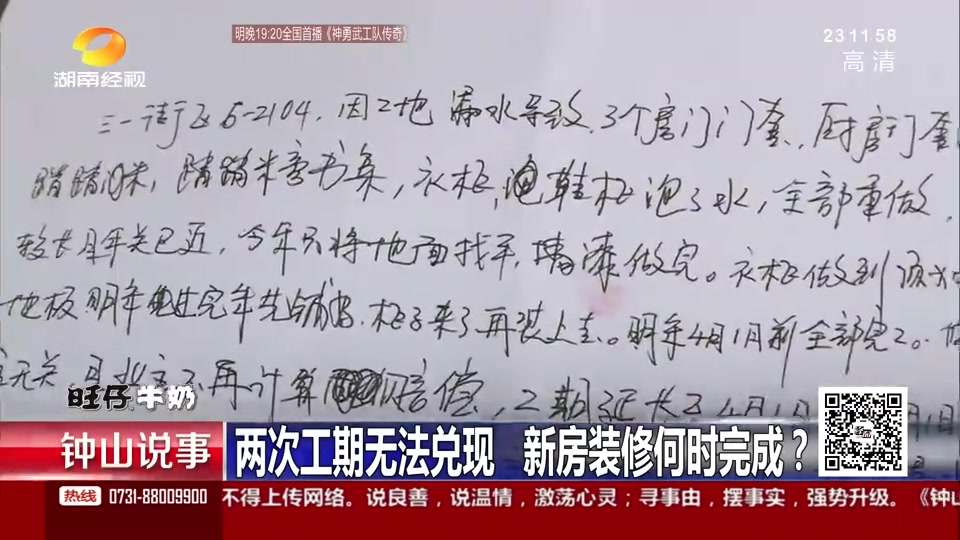 明晚19:20全国首播《神勇武工队传奇》
23 11 58
高清
湖南经视
三一街区6-2104.因工地漏水导致.3个房门门套、厨房门套
踏踏米,踏踏米旁书桌,衣柜,鞋柜泡了水,全部重做,
较长且年关已近,今年只将地面找平,墙漆做完。衣柜做到
地板明年过完年先铺好.柜子来了再装上去。明年4月1日前全部完工。
无关.且业主不再计算赔偿,工期延长至4月1日
旺仔牛奶
钟山说事
两次工期无法兑现 新房装修何时完成?
热线 0731-88009900
不得上传网络。说良善,说温情,激荡心灵;寻事由,摆事实,强势升级。《钟山